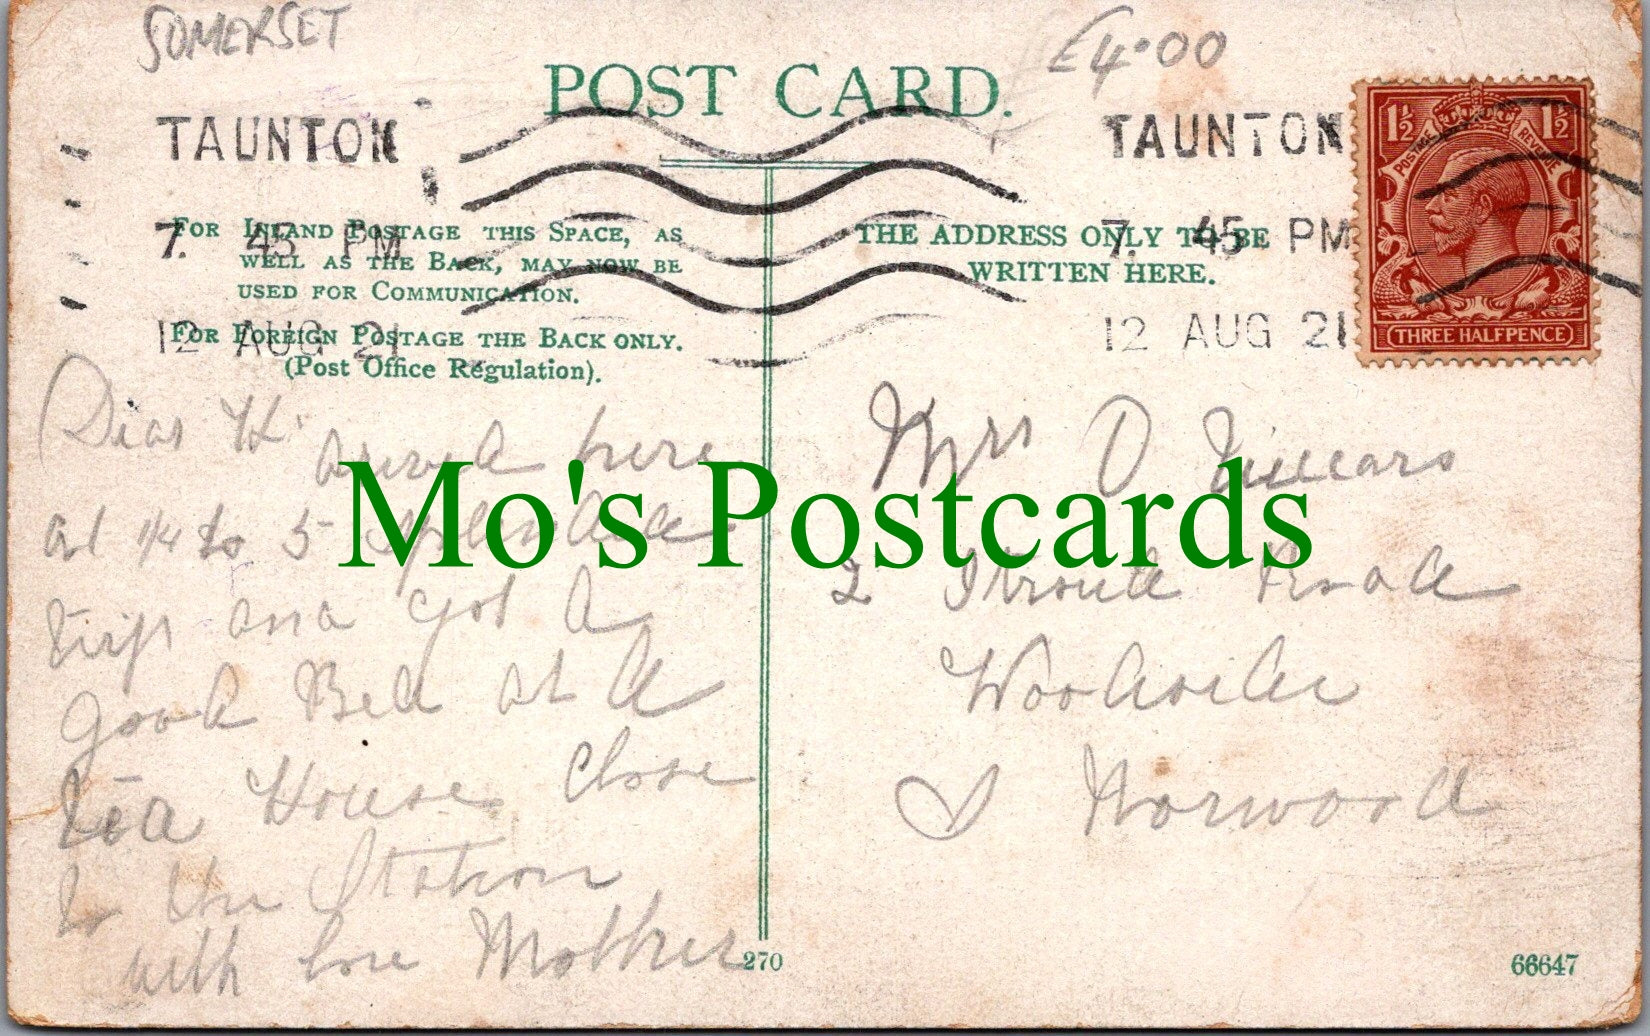 SOMERSET
£4.00
POST CARD.
TAUNTON
7. 45 PM
12 AUG 21
TAUNTON
7. 45 PM
12 AUG 21
1½ 1½
POSTAGE REVENUE
THREE HALFPENCE
FOR INLAND POSTAGE THIS SPACE, AS
WELL AS THE BACK, MAY NOW BE
USED FOR COMMUNICATION.
FOR FOREIGN POSTAGE THE BACK ONLY.
(Post Office Regulation).
THE ADDRESS ONLY TO BE
WRITTEN HERE.
Dear H
arived here
at 1/4 to 5 splendid
trip and got a
good Bed at a
tea House close
to the Station
with love Mother
Mrs O
2 Road
Woodside
S Norwood
Mo's Postcards
270
66647